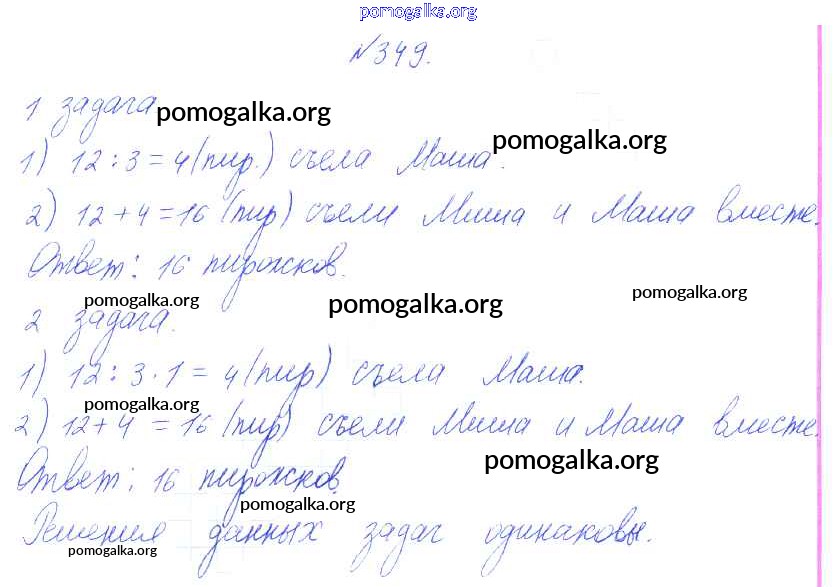 pomogalka.org
№349.
1 задача
pomogalka.org
pomogalka.org
1) 12:3=4(пир.) съела Маша.
2) 12+4=16 (пир) съели Миша и Маша вместе.
Ответ: 16 пирожков.
pomogalka.org
pomogalka.org
pomogalka.org
2 задача.
1) 12:3·1=4(пир) съела Маша.
pomogalka.org
2) 12+4=16 (пир) съели Миша и Маша вместе.
pomogalka.org
Ответ: 16 пирожков.
pomogalka.org
Решения данных задач одинаковы.
pomogalka.org